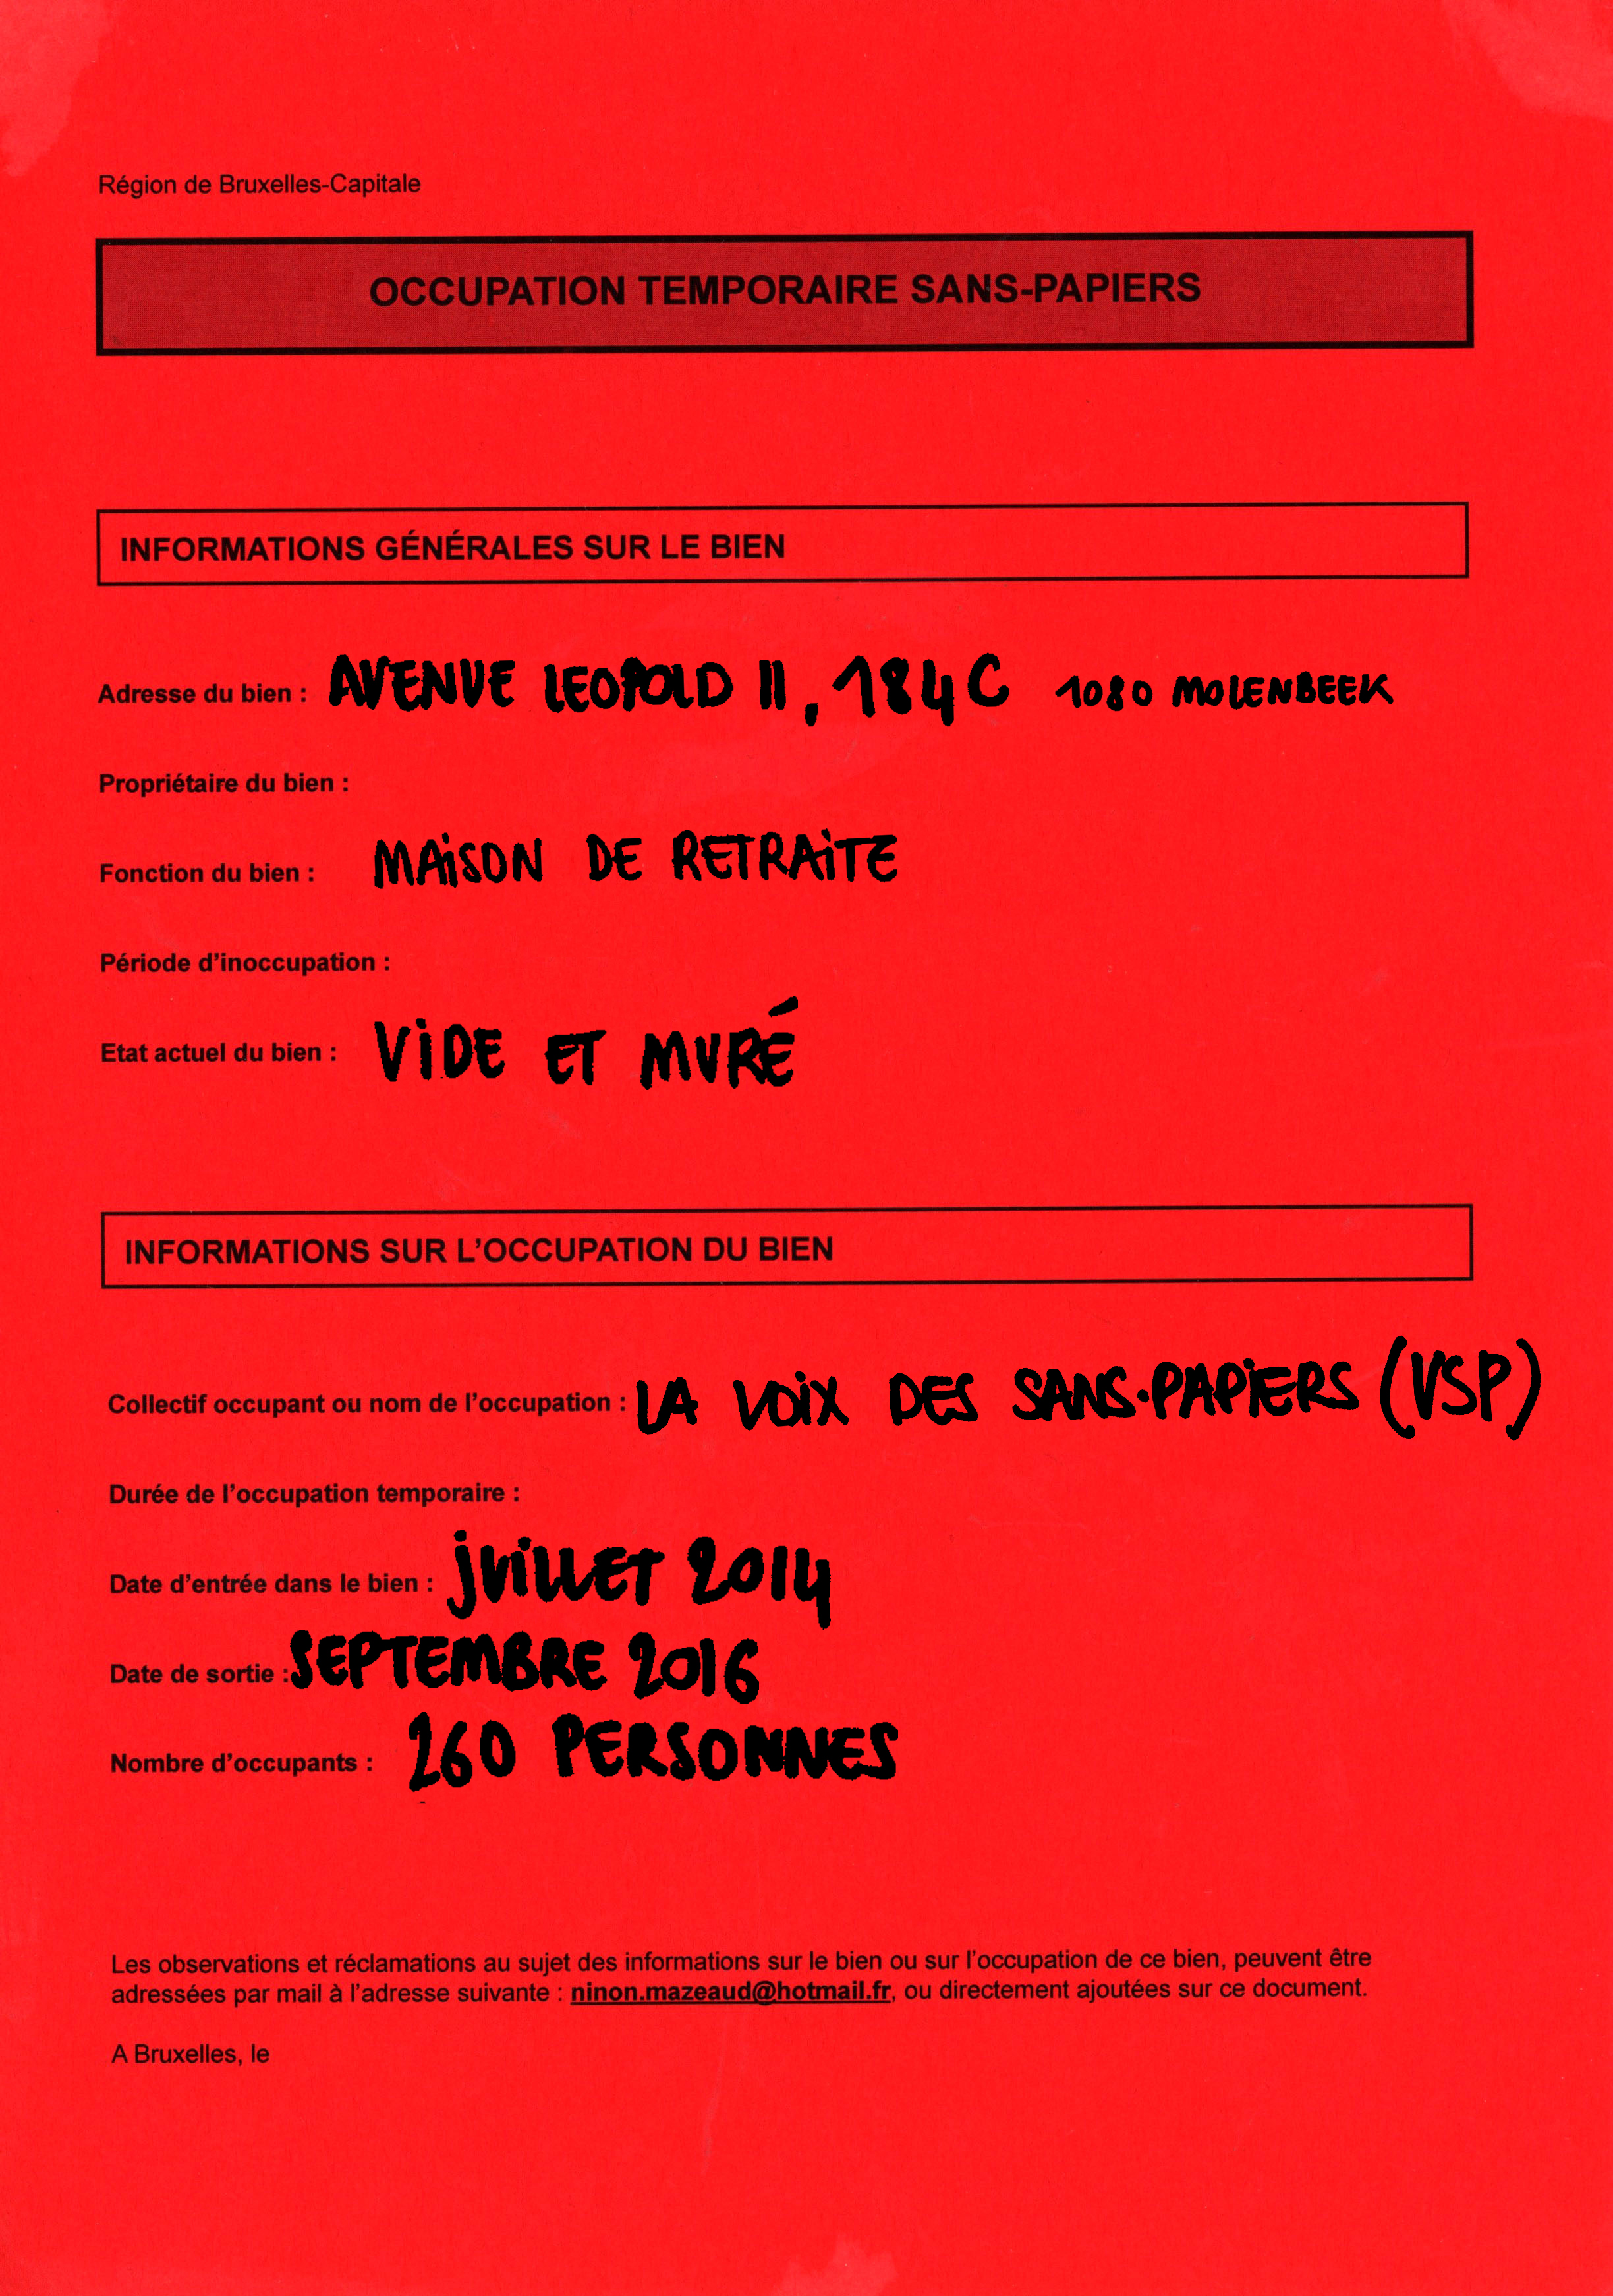 Région de Bruxelles-Capitale
OCCUPATION TEMPORAIRE SANS-PAPIERS
INFORMATIONS GÉNÉRALES SUR LE BIEN
Adresse du bien : AVENUE LEOPOLD II, 184C 1080 MOLENBEEK
Propriétaire du bien :
Fonction du bien : MAiSON DE RETRAiTE
Période d'inoccupation :
Etat actuel du bien : ViDE ET MURÉ
INFORMATIONS SUR L'OCCUPATION DU BIEN
Collectif occupant ou nom de l'occupation : LA VOiX DES SANS-PAPiERS (VSP)
Durée de l'occupation temporaire :
Date d'entrée dans le bien : jUiLLET 2014
Date de sortie : SEPTEMBRE 2016
Nombre d'occupants : 260 PERSONNES
Les observations et réclamations au sujet des informations sur le bien ou sur l'occupation de ce bien, peuvent être
adressées par mail à l'adresse suivante : ninon.mazeaud@hotmail.fr, ou directement ajoutées sur ce document.
A Bruxelles, le